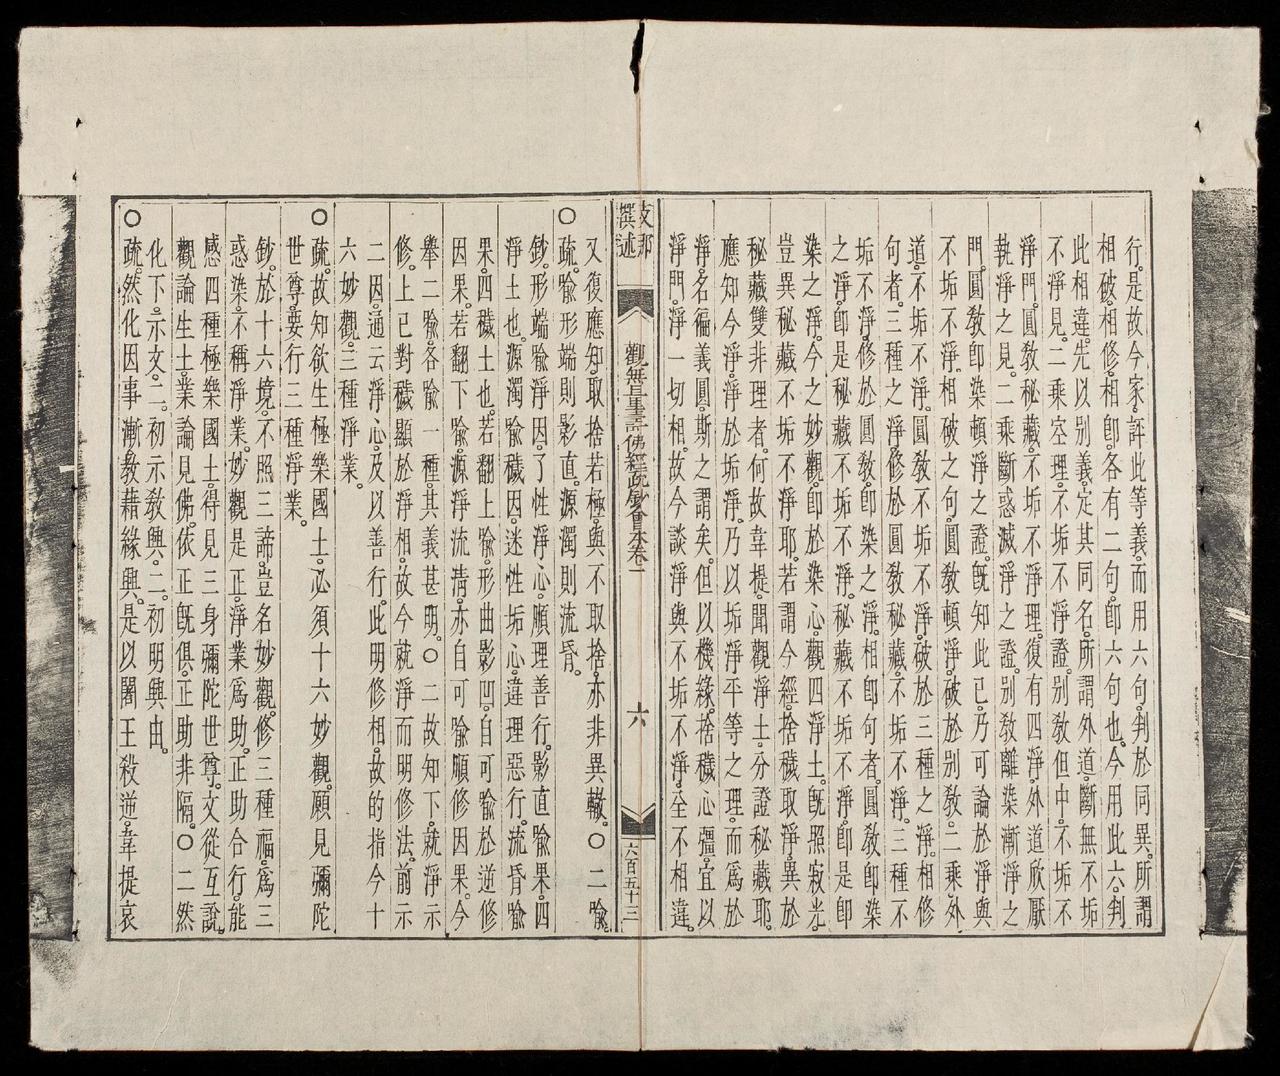 行。是故今家。評此等義。而用六句。判於同異。所謂
相破。相修。相卽。各有二句。卽六句也。今用此六。判
此相違。先以別義。定其同名。所謂外道。斷無不垢
不淨見。二乘空理。不垢不淨證。別教但中。不垢不
淨門。圓教秘藏。不垢不淨理。復有四淨。外道欣厭
執淨之見。二乘斷惑滅淨之證。別教離染漸淨之
門。圓教卽染頓淨之證。旣知此已。乃可論於淨與
不垢不淨。相破之句。圓教頓淨。破於別教。二乘。外
道。不垢不淨。圓教不垢不淨。破於三種之淨。相修
句者。三種之淨。修於圓教秘藏。不垢不淨。三種不
垢不淨。修於圓教。卽染之淨。相卽句者。圓教卽染
之淨。卽是秘藏。不垢不淨。秘藏不垢不淨。卽是卽
染之淨。今之妙觀。卽於染心。觀四淨土。旣照寂光。
豈異秘藏不垢不淨耶。若謂今經。捨穢取淨。異於
秘藏雙非理者。何故韋提。聞觀淨土。分證秘藏耶。
應知今淨。淨於垢淨。乃以垢淨平等之理。而爲於
淨。名徧義圓。斯之謂矣。但以機緣。捨穢心彊。宜以
淨門。淨一切相。故今談淨與不垢不淨。全不相違。
支那
撰述
觀無量壽佛經疏鈔會本卷一
六
六百五十三
又復應知。取捨若極。與不取捨。亦非異轍。○二喩
○疏。喩形端則影直。源濁則流昏。
鈔。形端喩淨因。了性淨心。順理善行。影直喩果。四
淨土也。源濁喩穢因。迷性垢心。違理惡行。流昏喩
果。四穢土也。若翻上喩。形曲影凹。自可喩於逆修
因果。若翻下喩。源淨流清。亦自可喩順修因果。今
舉二喩。各喩一種。其義甚明。○二故知下。就淨示
修。上已對穢顯於淨相。故今就淨而明修法。前示
二因。通云淨心。及以善行。此明修相。故的指今十
六妙觀。三種淨業。
○疏。故知欲生極樂國土。必須十六妙觀。願見彌陀
世尊。要行三種淨業。
鈔。於十六境。不照三諦。豈名妙觀。修三種福。爲三
惑染。不稱淨業。妙觀是正。淨業爲助。正助合行。能
感四種極樂國土。得見三身彌陀世尊。文從互說。
觀論生土。業論見佛。依正旣俱。正助非隔。○二然
化下。示文。二。初示教興。二。初明興由。
○疏。然化因事漸。教藉緣興。是以闍王殺逆。韋提哀